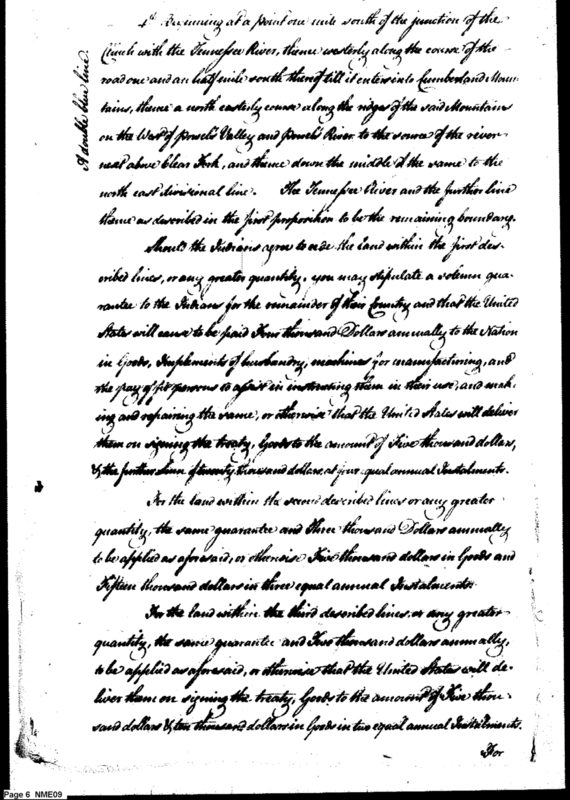 A double blue line.
4th Beginning at a point one mile south of the junction of the
Clinch with the Tennessee River, thence westerly along the course of the
road one and an half mile south thereof till it enters into Cumberland Moun-
tains, thence a north easterly course along the ridges of the said Mountains
on the West of Powels Valley and Powels River to the source of the river
next above Clear Fork, and thence down the middle of the same to the
north east divisional line. The Tennessee River and the further line
thence as described in the first proposition to be the remaining boundary.
Should the Indians agree to cede the Land within the first des-
cribed lines, or any greater quantity, you may stipulate a solemn gua-
rantee to the Indians for the remainder of their Country and that the United
States will cause to be paid Four thousand Dollars annually to the Nation
in Goods, Implements of husbandry, machines for manufacturing, and
the pay of fit persons to assist in instructing them in their use, and mak-
ing and repairing the same, or otherwise that the United States will deliver
them on signing the treaty, Goods to the amount of Five thousand dollars,
& the further Sum of twenty thousand dollars, at four equal annual Instalments.
For the land within the second described lines or any greater
quantity, the same guarantee and Three thousand Dollars annually
to be applied as aforesaid, or otherwise Five thousand dollars in Goods and
Fifteen thousand dollars in three equal annual Instalments.
For the land within the third described lines, or any greater
quantity, the same guarantee and thousand dollars annually,
to be applied as aforesaid, or otherwise that the United States will de-
liver them on signing the treaty, Goods to the amount of Five thou-
sand dollars & ten thousand dollars in Goods in two equal annual Instalments.
For
Page 6 NME09